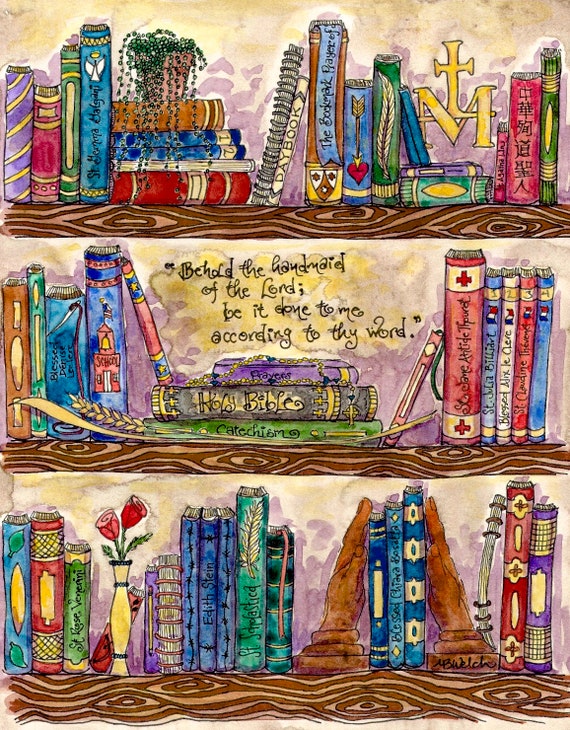 St Gemma Galgani
The Bookmark Prayer of
M
中華殉道聖人
"Behold the handmaid
of the Lord;
be it done to me
according to thy word."
Blessed
SCHOOL
Prayers
Holy Bible
Catechism
St. Jeanne Antide Thouret
1
St. Julia Billiart
2
Blessed Alix le Clerc
3
St. Claudine Thevenet
St Rose Venerini
Edith Stein
St. Scholastica
Blessed Chiara Bosatta
MBWelch